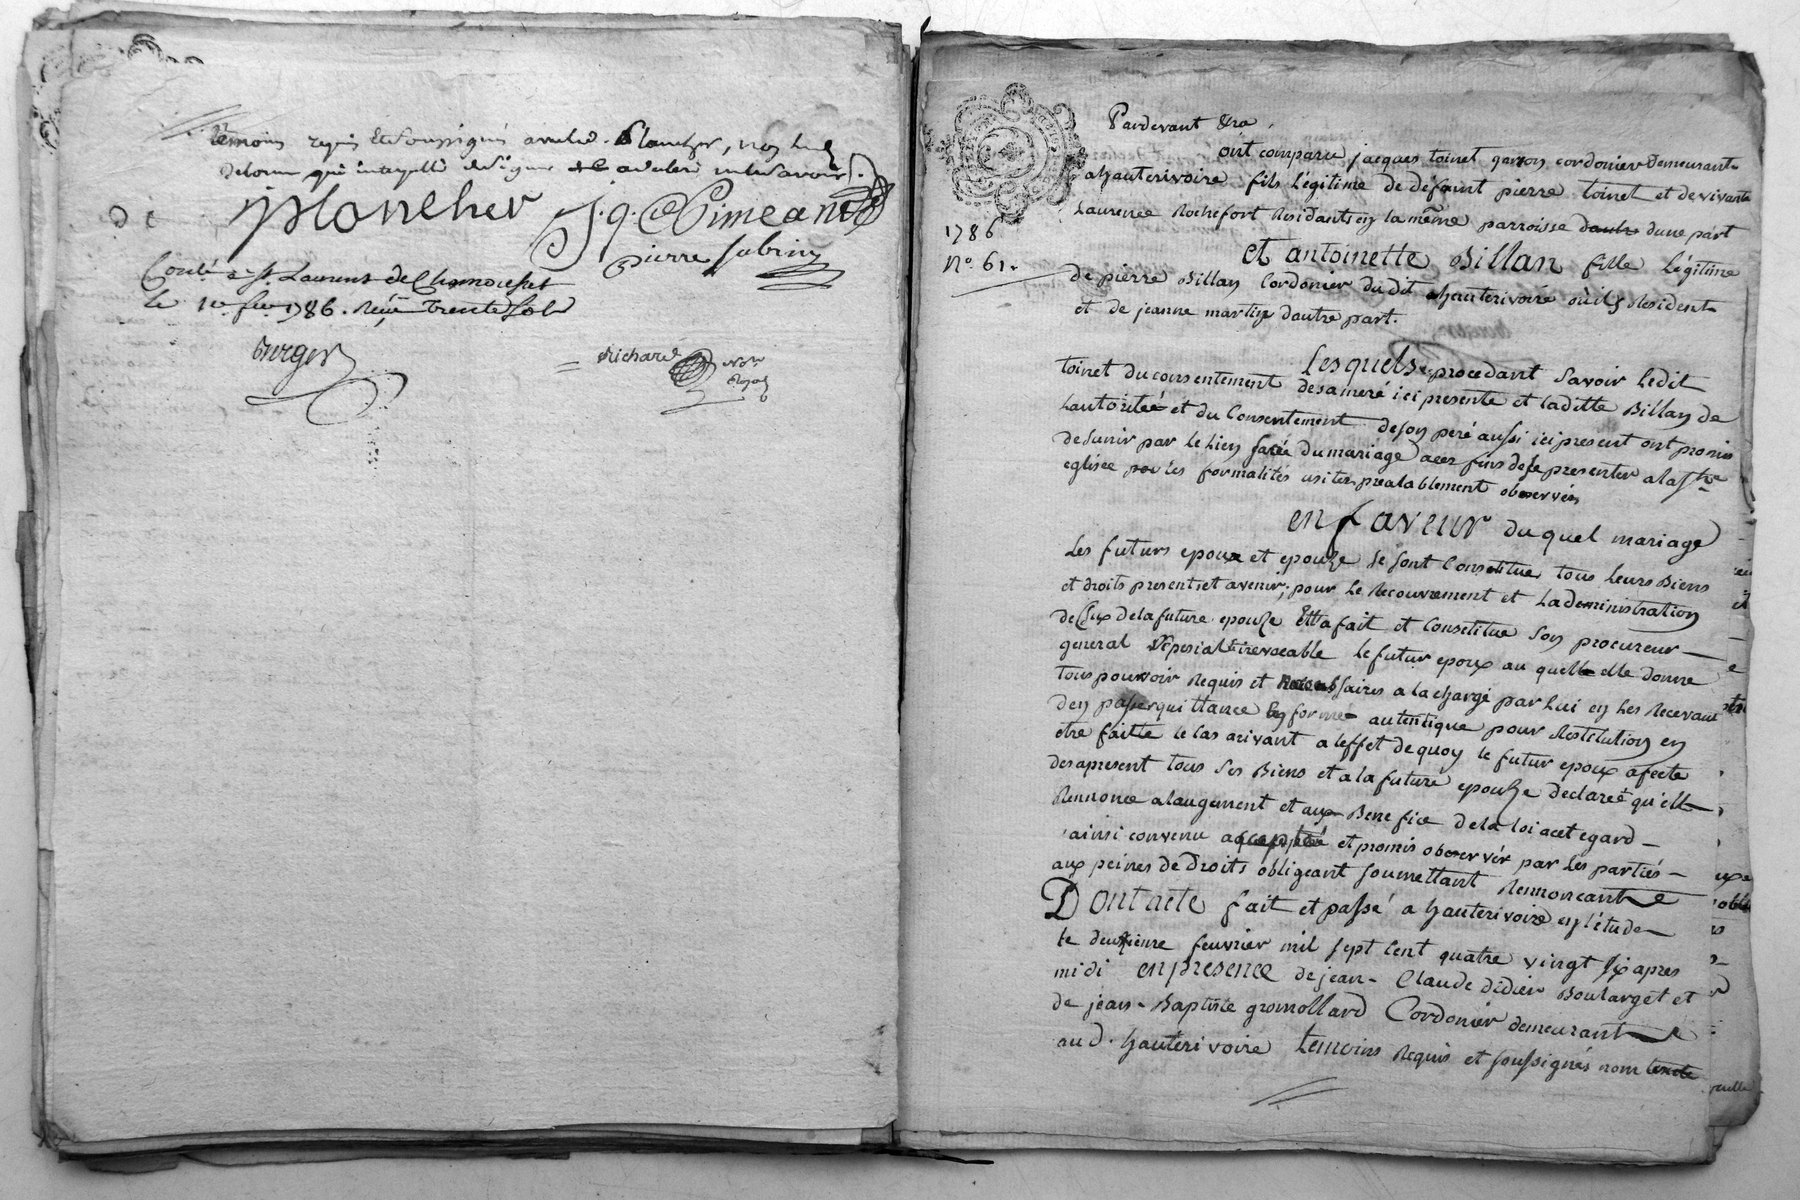 témoins requis et soussignés avec led. Plancher, non led.
delorme qui interpellé designer a declaré ne le savoir.
JPlancher
pierre Sabrin
Conlé a St. Laurent de Chamousset
le 1er fev 1786. Reçu trente sols
Berger
Richard Nore
Royal
Pardevant &ra.
ont comparu jacques toinet garson cordonier demeurant
a hauterivoire fils légitime de défaunt pierre toinet et de vivante
Laurence Rochefort Residants en la même parroisse dautre dune part
1786
No. 61.
et antoinette Billan fille légitime
de pierre Billan Cordonier du dit hauterivoire ou ils Resident
et de jeanne martin dautre part.
Lesquels procedant savoir ledit
toinet du consentement desameré ici presente et ladite Billan de
Lautoriteé et du Consentement deson peré aussi ici present ont promis
desunir par le Lien sacré du mariage acer fins dese presenter a la Ste
eglisee por les formalités usiteés prealablement observées
en faveur du quel mariage
Les futurs epoux et epouze se sont Constitué tous Leurs Biens
et droits present et avenir; pour Le Recouvrement et Ladministration
de Ceux dela future epouze Ella fait et Constitue son procureur
general Sepesial et irrevocable Le futur epoux au quelle elle donne
tous pouvoir Requis et Necessaires a la charge par Lui en Les Recevant
den passer quittance en forme autentique pour Restitution en
etre faitte le Cas arivant a leffet de quoy le futur epoux afecte
desapresent tous Ses Biens et a la future epouze declareé qu'elle
Rennonce a laugement et aux Benefice de la loi acet egard
ainsi convenu accepté et promis observér par les parties
aux peines de Droits obligeant soumettant Rennoncant &
Dont acte fait et passé a hauterivoire en l'étude
le deuxieme feuvrier mil sept Cent quatre vingt six apres
midi en presence de jean-Claude didier Boularget et
de jean-Baptiste gromollard Cordonier demeurant
aud. hauterivoire temoins Requis et soussignés nom